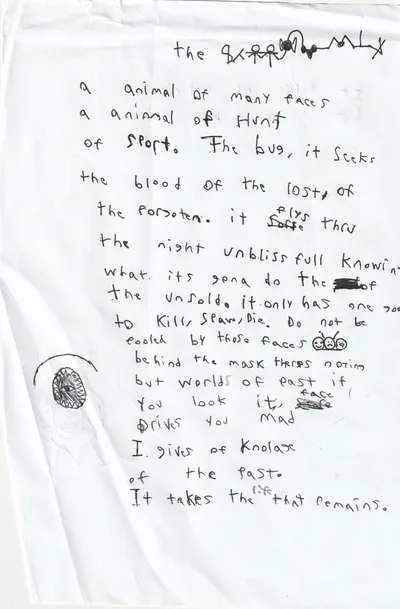 the
a animal of many faces
a animal of Hunt
of sport. The bug, it seeks
the blood of the lost, of
the forgoten. it flys thru
the night unbliss full knowin
what its gona do the of
the unsold. it only has one goo
to Kill, Spaw, Die. Do not be
fooled by those faces
behind the mask theres noting
but worlds of past if
You look it, face
Drives you mad
I gives of Knolax
of the past.
It takes the life that remains.